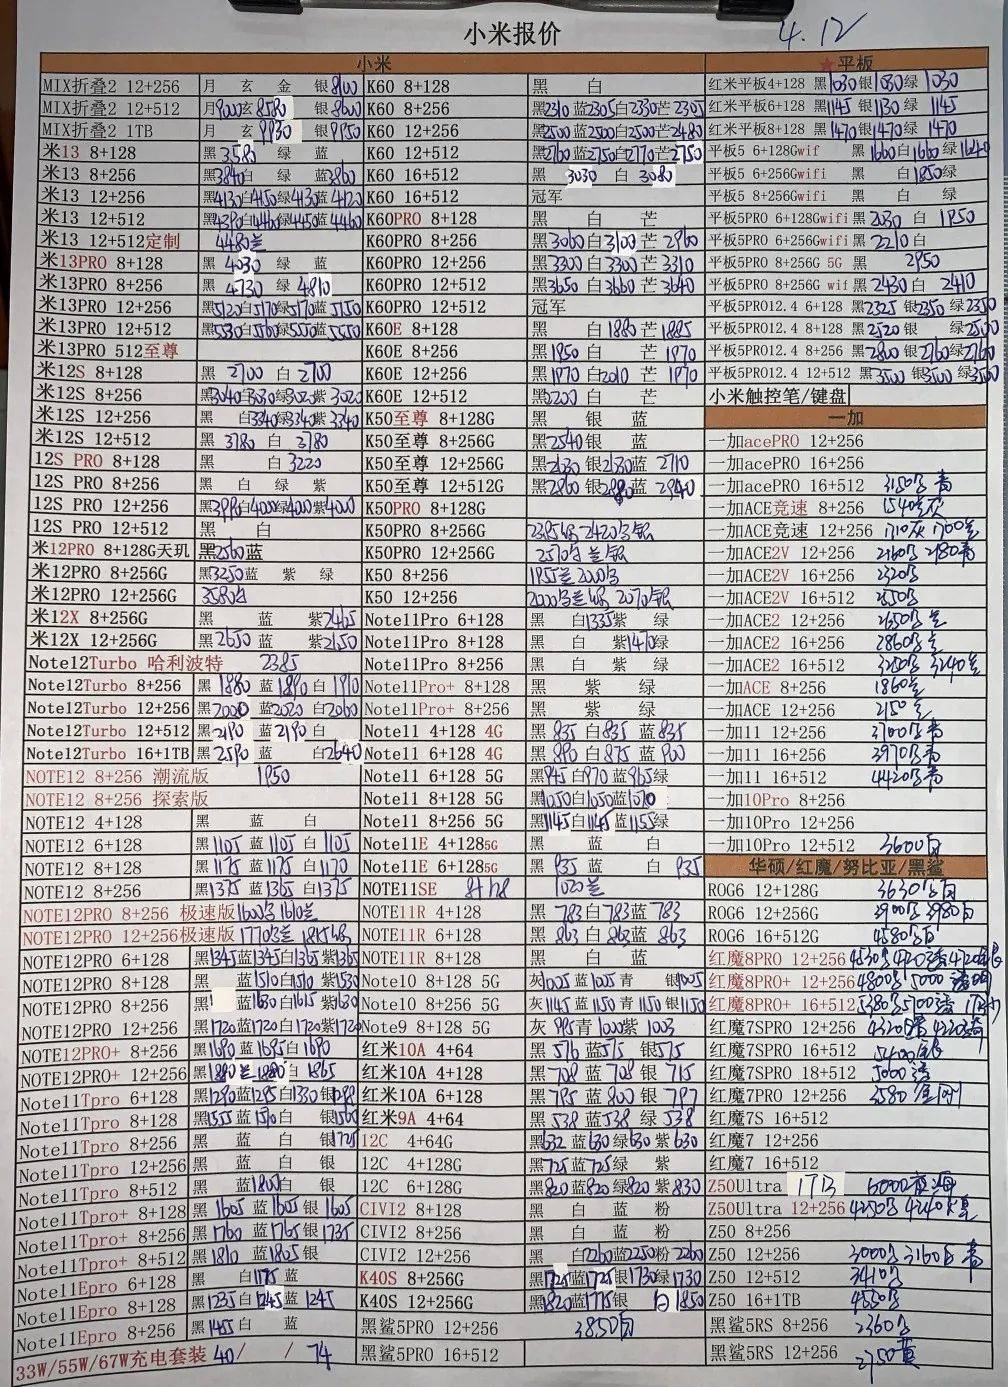 小米报价
4.12
小米
MIX折叠2 12+256 月 玄 金 银8100
MIX折叠2 12+512 月9000玄8580 银8600
MIX折叠2 1TB 月 玄9930 银9950
米13 8+128 黑3580 绿 蓝
米13 8+256 黑3840白 绿 蓝3860
米13 12+256 黑4130白4150绿4130蓝4120
米13 12+512 黑4390白4460绿4450蓝4460
米13 12+512定制 4480兰
米13PRO 8+128 黑 4030 绿 蓝
米13PRO 8+256 黑 4730 绿 4810
米13PRO 12+256 黑5120白5170绿5170蓝5150
米13PRO 12+512 黑5530白5560绿5550蓝5550
米13PRO 512至尊
米12S 8+128 黑 2700 白 2700
米12S 8+256 黑3040白3030绿3020紫3020
米12S 12+256 黑 白3340绿3340紫3340
米12S 12+512 黑 3780 白 3780
12S PRO 8+128 黑 白3220
12S PRO 8+256 黑 白 绿 紫
12S PRO 12+256 黑3990白4000绿4000紫4000
12S PRO 12+512 黑 白
米12PRO 8+128G天玑 黑2560蓝
米12PRO 8+256G 黑3250蓝 紫 绿
米12PRO 12+256G 3580白
米12X 8+256G 黑 蓝 紫2465
米12X 12+256G 黑2650 蓝 紫2650
Note12Turbo 哈利波特 2385
Note12Turbo 8+256 黑 1880 蓝1890白1910
Note12Turbo 12+256 黑2000 蓝2020 白2060
Note12Turbo 12+512 黑2190 蓝2190白
Note12Turbo 16+1TB 黑2590 蓝 白2640
NOTE12 8+256 潮流版 1950
NOTE12 8+256 探索版
NOTE12 4+128 黑 蓝 白
NOTE12 6+128 黑1105 蓝1105 白1105
NOTE12 8+128 黑1175 蓝1175 白1170
NOTE12 8+256 黑1375 蓝1365 白1375
NOTE12PRO 8+256 极速版
NOTE12PRO 12+256极速版
NOTE12PRO 6+128 黑1345蓝1345白1365紫1365
NOTE12PRO 8+128 黑 蓝1510白1510 紫1530
NOTE12PRO 8+256 黑 蓝1630白1615 紫1630
NOTE12PRO 12+256 黑1720蓝1720白1720紫1720
NOTE12PRO+ 8+256 黑1690 蓝1695白1690
NOTE12PRO+ 12+256 黑1880 兰1880白1865
Note11Tpro 6+128 黑1280蓝1285白1330银1298
Note11Tpro 8+128 黑1555 蓝1570白 银1565
Note11Tpro 8+256 黑 蓝 白 银1725
Note11Tpro 12+256 黑 蓝 白 银
Note11Tpro 8+512 黑 蓝1800白 银
Note11Tpro+ 8+128 黑 1605 蓝1605 银1605
Note11Tpro+ 8+256 黑1760 蓝1765银1735
Note11Tpro+ 8+512 黑1810 蓝1805银
Note11Epro 6+128 黑 白1175 蓝
Note11Epro 8+128 黑1235白1245蓝 1245
Note11Epro 8+256 黑1455白 蓝
33W/55W/67W充电套装 40/ / 74
K60 8+128 黑 白
K60 8+256 黑2310蓝2305白2330芒2305
K60 12+256 黑2500蓝2500白2500芒2480
K60 12+512 黑2760蓝2750白2770芒2750
K60 16+512 黑 3030 白 3080
K60 16+512 冠军
K60PRO 8+128 黑 白 芒
K60PRO 8+256 黑3060白3100芒2960
K60PRO 12+256 黑3300白3300芒3310
K60PRO 12+512 黑3650白3660芒3640
K60PRO 12+512 冠军
K60E 8+128 黑 白1880芒1885
K60E 8+256 黑1950 白 芒1970
K60E 12+256 黑1970白2010 芒1970
K60E 12+512 黑2200 白 芒
K50至尊 8+128G 黑 银 蓝
K50至尊 8+256G 黑2540银 蓝
K50至尊 12+256G 黑2630 银2630蓝 2710
K50至尊 12+512G 黑2860 银2880蓝 2940
K50PRO 8+128G
K50PRO 8+256G
K50PRO 12+256G
K50 8+256
K50 12+256
Note11Pro 6+128 黑 白1335紫 绿
Note11Pro 8+128 黑 白 紫1410绿
Note11Pro 8+256 黑 白 紫 绿
Note11Pro+ 8+128 黑 紫 绿
Note11Pro+ 8+256 黑 紫 绿
Note11 4+128 4G 黑 835 白835 蓝835
Note11 6+128 4G 黑 890 白875 蓝 900
Note11 6+128 5G 黑945白970 蓝965绿
Note11 8+128 5G 黑1050白1050蓝1070
Note11 8+256 5G 黑1145白1145蓝1155绿
Note11E 4+1285G 黑 蓝 白
Note11E 6+1285G 黑 935 蓝 白 935
NOTE11SE 8+128 1020兰
NOTE11R 4+128 黑 783白783蓝783
NOTE11R 6+128 黑 863 白863蓝863
NOTE11R 8+128 黑 白 蓝
Note10 8+128 5G 灰1025 蓝1025 青 银1005
Note10 8+256 5G 灰1145 蓝1150 青 1150 银1150
Note9 8+128 5G 灰 995青 1000紫 1003
红米10A 4+64 黑 576 蓝575 银575
红米10A 4+128 黑 708 蓝708 银 715
红米10A 6+128 黑 795 蓝 800 银 797
红米9A 4+64 黑 538 蓝538 绿 538
12C 4+64G 黑632 蓝630绿630紫630
12C 4+128G 黑725蓝725绿 紫
12C 6+128G 黑820 蓝820绿820紫830
CIVI2 8+128 黑 白 蓝 粉
CIVI2 8+256 黑 白 蓝 粉
CIVI2 12+256 黑 白2260蓝2250粉2260
K40S 8+256G 黑1725蓝1725银1730绿1730
K40S 12+256G 黑1820蓝1775银 白1850
黑鲨5PRO 12+256 3850白
黑鲨5PRO 16+512
★平板
红米平板4+128 黑1030银1030绿 1030
红米平板6+128 黑1145银1130绿 1145
红米平板8+128 黑1470银1470绿 1470
平板5 6+128Gwif 黑 1660白1660绿1640
平板5 6+256Gwifi 黑 白1850绿
平板5 8+256Gwifi 黑 白 绿
平板5PRO 6+128Gwifi 黑2030 白 1950
平板5PRO 6+256Gwifi 黑2210白
平板5PRO 8+256G 5G 黑 2950
平板5PRO 8+256G wif 黑2430白2410
平板5PRO12.4 6+128 黑2325 银2350 绿2350
平板5PRO12.4 8+128 黑2520银 绿2500
平板5PRO12.4 8+256 黑2800银2760绿2760
平板5PRO12.4 12+512 黑3500 银3500 绿3560
小米触控笔/键盘
一加
一加acePRO 12+256
一加acePRO 16+256
一加acePRO 16+512
一加ACE竞速 8+256
一加ACE竞速 12+256 1710灰 1700兰
一加ACE2V 12+256
一加ACE2V 16+256
一加ACE2V 16+512
一加ACE2 12+256
一加ACE2 16+256
一加ACE2 16+512
一加ACE 8+256 1860兰
一加ACE 12+256 2150兰
一加11 12+256
一加11 16+256
一加11 16+512
一加10Pro 8+256
一加10Pro 12+256
一加10Pro 12+512 3600白
华硕/红魔/努比亚/黑鲨
ROG6 12+128G
ROG6 12+256G
ROG6 16+512G
红魔8PRO 12+256
红魔8PRO+ 12+256
红魔8PRO+ 16+512
红魔7SPRO 12+256
红魔7SPRO 16+512
红魔7SPRO 18+512
红魔7PRO 12+256
红魔7S 16+512
红魔7 12+256
红魔7 16+512
Z50Ultra 1TB
Z50Ultra 12+256
Z50 8+256
Z50 12+256
Z50 12+512
Z50 16+1TB
黑鲨5RS 8+256
黑鲨5RS 12+256